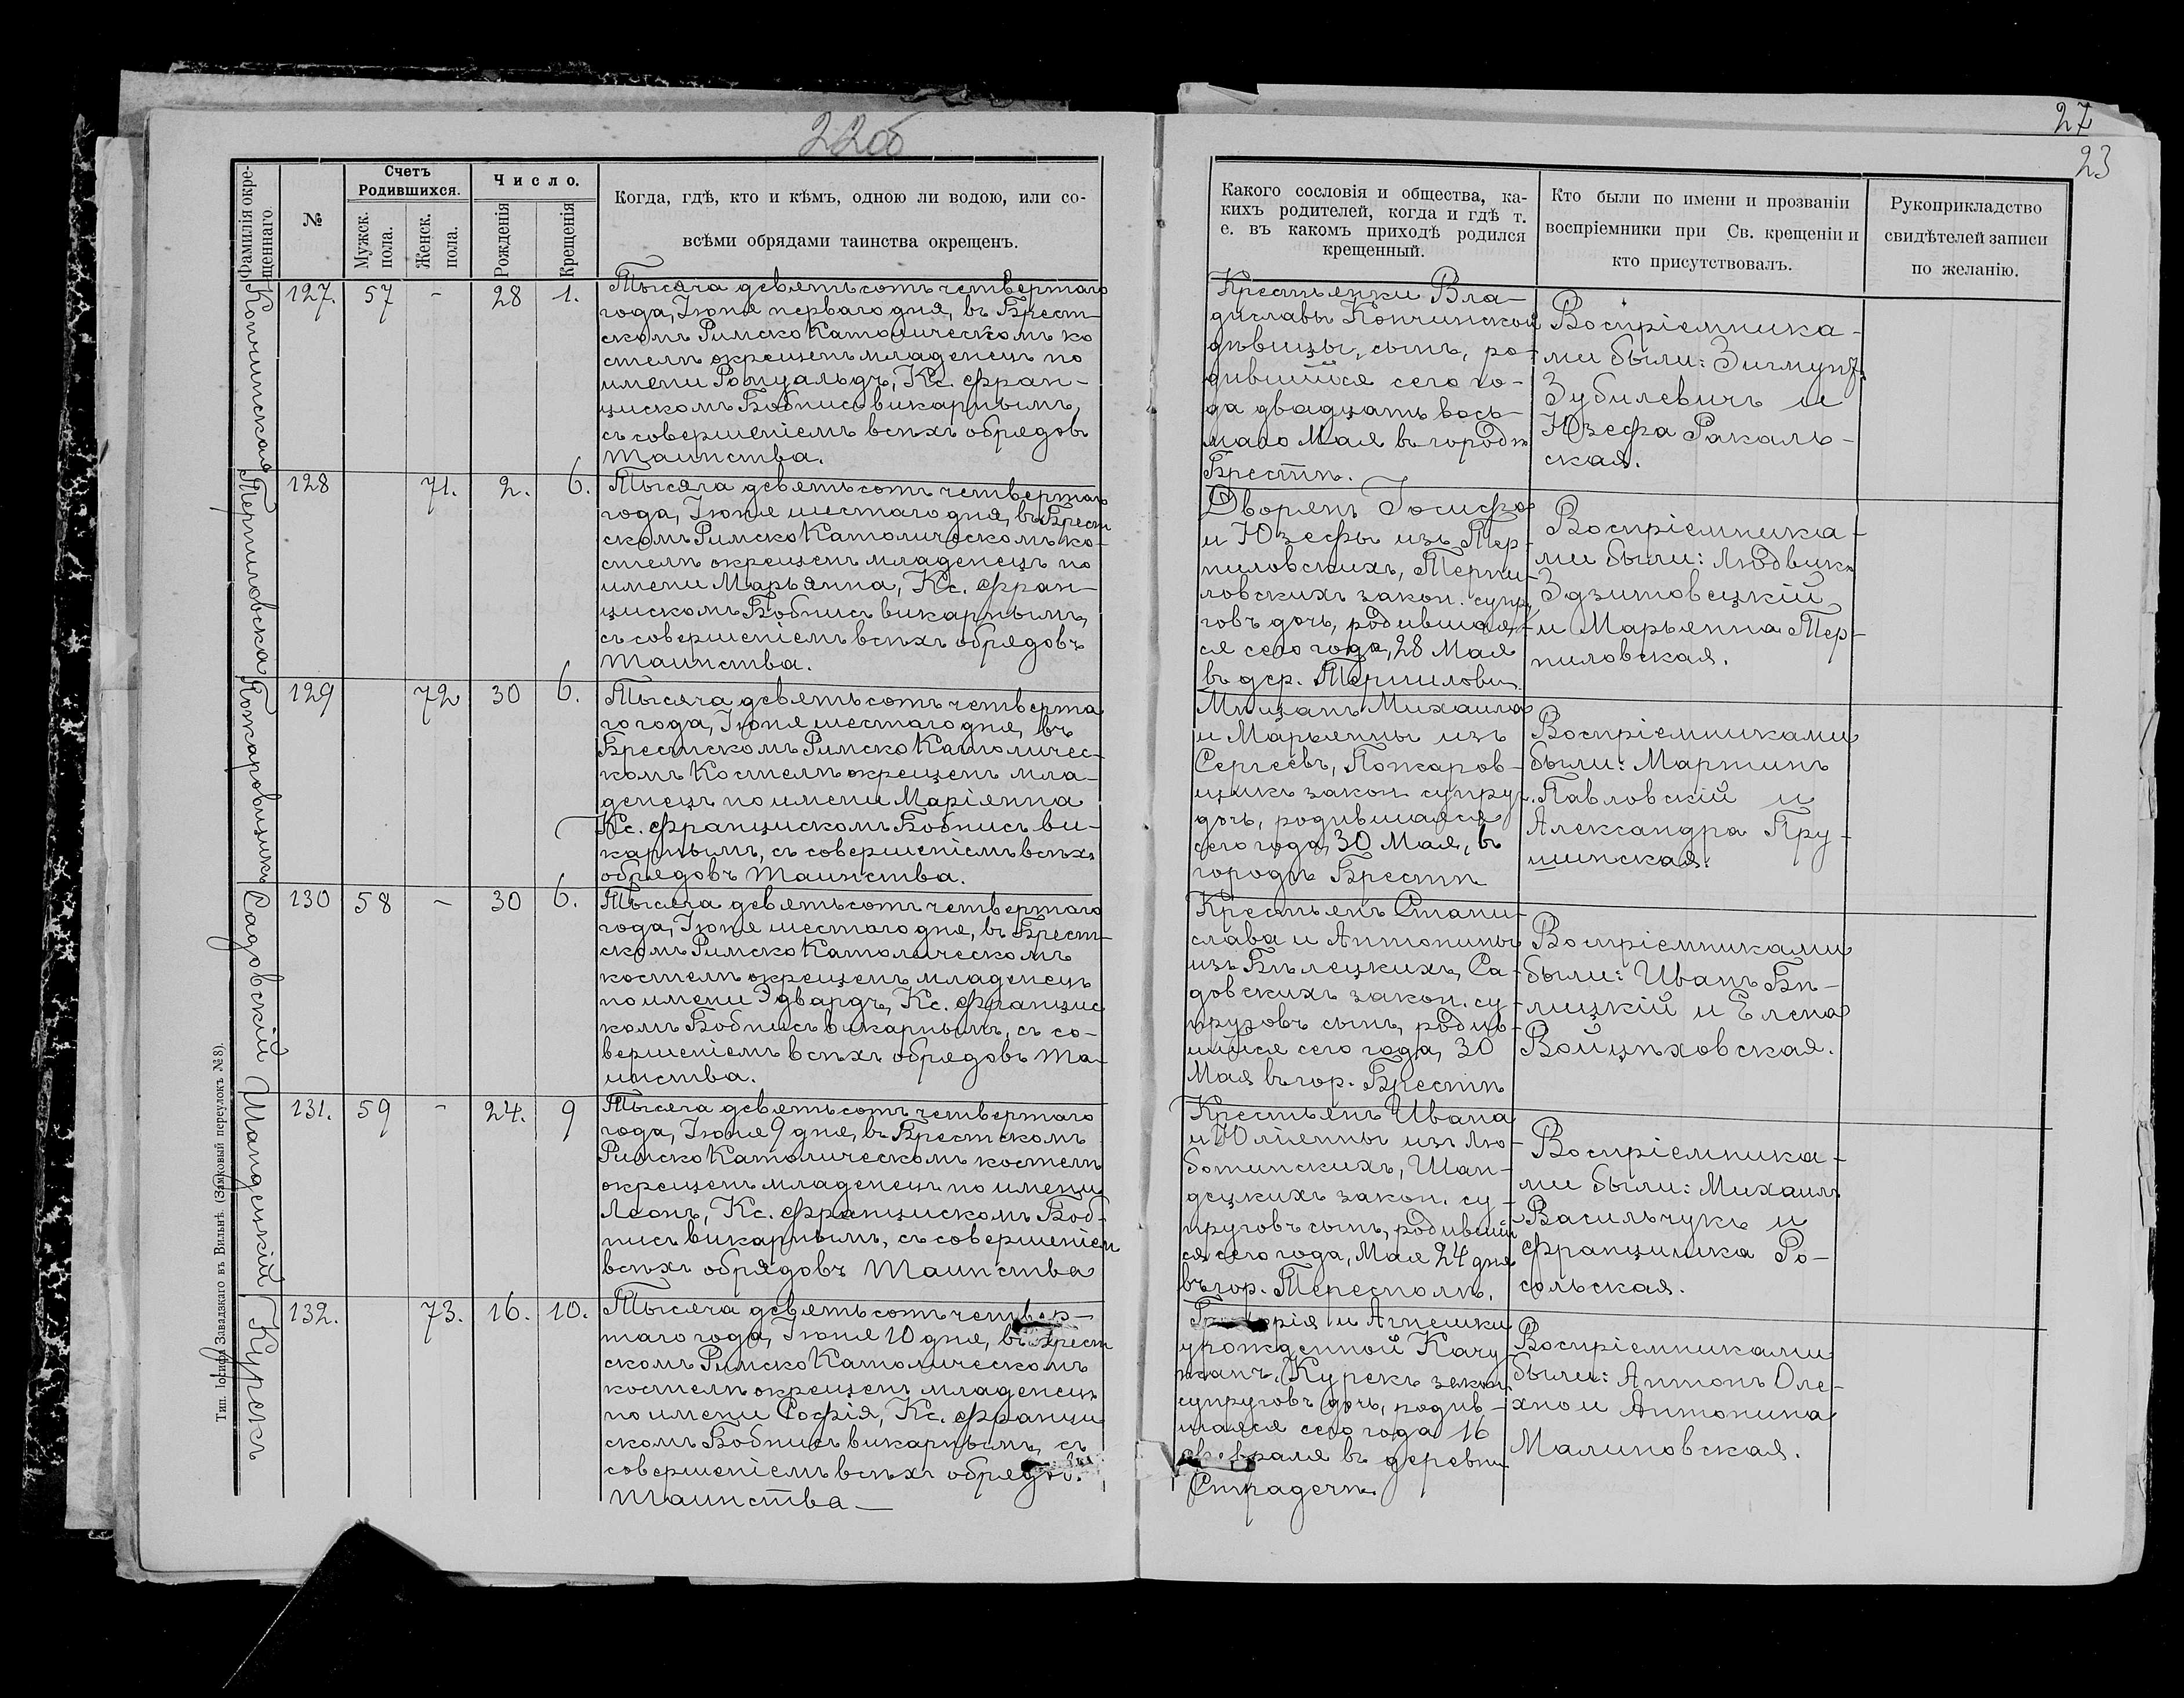 22об
27
23
Фамилія окре-
щеннаго.
№
Счетъ
Родившихся.
Мужск.
пола.
Женск.
пола.
Число.
Рожденія
Крещенія
Когда, гдѣ, кто и кѣмъ, одною ли водою, или со-
всѣми обрядами таинства окрещенъ.
Какого сословія и общества, ка-
кихъ родителей, когда и гдѣ т.
е. въ какомъ приходѣ родился
крещенный.
Кто были по имени и прозваніи
воспріемники при Св. крещеніи и
кто присутствовалъ.
Рукоприкладство
свидѣтелей записи
по желанію.
Кончинская
127. 57 - 28 1.
Тысяча девятьсотъ четвертаго
года, Іюня перваго дня, въ Брест-
скомъ Римско Католическомъ ко
стелѣ окрещенъ младенецъ по
имени Ромуальдъ, Кс. Фран-
цискомъ Бобнисъ викарнымъ,
съ совершеніемъ всѣхъ обрядовъ
Таинства.
Крестьянки Вла-
диславы Кончинской
дѣвицы, сынъ, ро-
дившійся сего го-
да двадцать вось-
маго Мая въ городѣ
Брестѣ.
Воспріемника-
ми были: Зигмунт
Зубилевичъ и
Юзефа Ракаль-
ская.
Терпиловская
128 71. 2. 6.
Тысяча девятьсотъ четвертаго
года, Іюня шестаго дня, въ Брест
скомъ Римско Католическомъ ко-
стелѣ окрещенъ младенецъ по
имени Марьянна, Кс. Фран-
цискомъ Бобнисъ викарнымъ,
съ совершеніемъ всѣхъ обрядовъ
Таинства.
Дворянъ Іосифа
и Юзефы изъ Тер-
пиловскихъ, Терпи-
ловскихъ закон. супру
говъ дочь, родившая
ся сего года, 28 Мая
въ дер. Терпиловѣ.
Воспріемника-
ми были: Людвикъ
Здзитовецкій
и Марьянна Тер-
пиловская.
Пожаровщикъ
129 72 30 6.
Тысяча девятьсотъ четверта
го года, Іюня шестаго дня, въ
Брестскомъ Римско Католичес-
комъ Костелѣ окрещенъ мла-
денецъ по имени Маріянна
Кс. Францискомъ Бобнисъ ви-
карнымъ, съ совершеніемъ всѣхъ
обрядовъ Таинства.
Мѣщанъ Михаила
и Марьянны изъ
Сергѣевъ, Пожаров-
щикъ закон. супруг.
дочь, родившаяся
сего года, 30 Мая, въ
городѣ Брестѣ
Воспріемниками
были: Мартинъ
Павловскій и
Александра Пру-
шинская.
Садовскій
130 58 - 30 6.
Тысяча девятьсотъ четвертаго
года, Іюня шестаго дня, въ Брест-
скомъ Римско Католическомъ
костелѣ окрещенъ младенецъ
по имени Эдвардъ, Кс. Францис
комъ Бобнисъ викарнымъ, съ со-
вершеніемъ всѣхъ обрядовъ Та-
инства.
Крестьянъ Стани-
слава и Антонины
изъ Бѣлецкихъ, Са-
довскихъ закон. су-
пруговъ сынъ, родив-
шійся сего года, 30
Мая въ гор. Брестѣ
Воспріемниками
были: Иванъ Бѣ-
лицкій и Елена
Войцѣховская.
Шандецкій
131. 59 - 24. 9
Тысяча девятьсотъ четвертаго
года, Іюня 9 дня, въ Брестскомъ
Римско Католическомъ костелѣ
окрещенъ младенецъ по имени
Леонъ, Кс. Францискомъ Боб-
нисъ викарнымъ, съ совершеніем
всѣхъ обрядовъ Таинства
Крестьянъ Ивана
и Юліянны изъ Лю-
ботинскихъ, Шан-
децкихъ закон. су-
пруговъ сынъ, родившій
ся сего года, Мая 24 дня
въ гор. Тересполѣ.
Воспріемника-
ми были: Михаилъ
Васильчукъ и
Францишка Ро-
сольская.
Курекъ
132. 73. 16. 10.
Тысяча девятьсотъ четвер-
таго года, Іюня 10 дня, въ Брест
скомъ Римско Католическомъ
костелѣ окрещенъ младенецъ
по имени Софія, Кс. Франци
скомъ Бобнисъ викарнымъ, съ
совершеніемъ всѣхъ обрядовъ
Таинства —
Григорія и Агнешки
урожденной Качу
жанъ. Курекъ закон.
супруговъ дочь, родив-
шаяся сего года 16
Февраля въ деревнѣ
Страдечѣ.
Воспріемниками
были: Антонъ Оле-
хно и Антонина
Малиновская.
Тип. Іосифа Завадзкаго въ Вильнѣ. (Замковый переулокъ № 8).